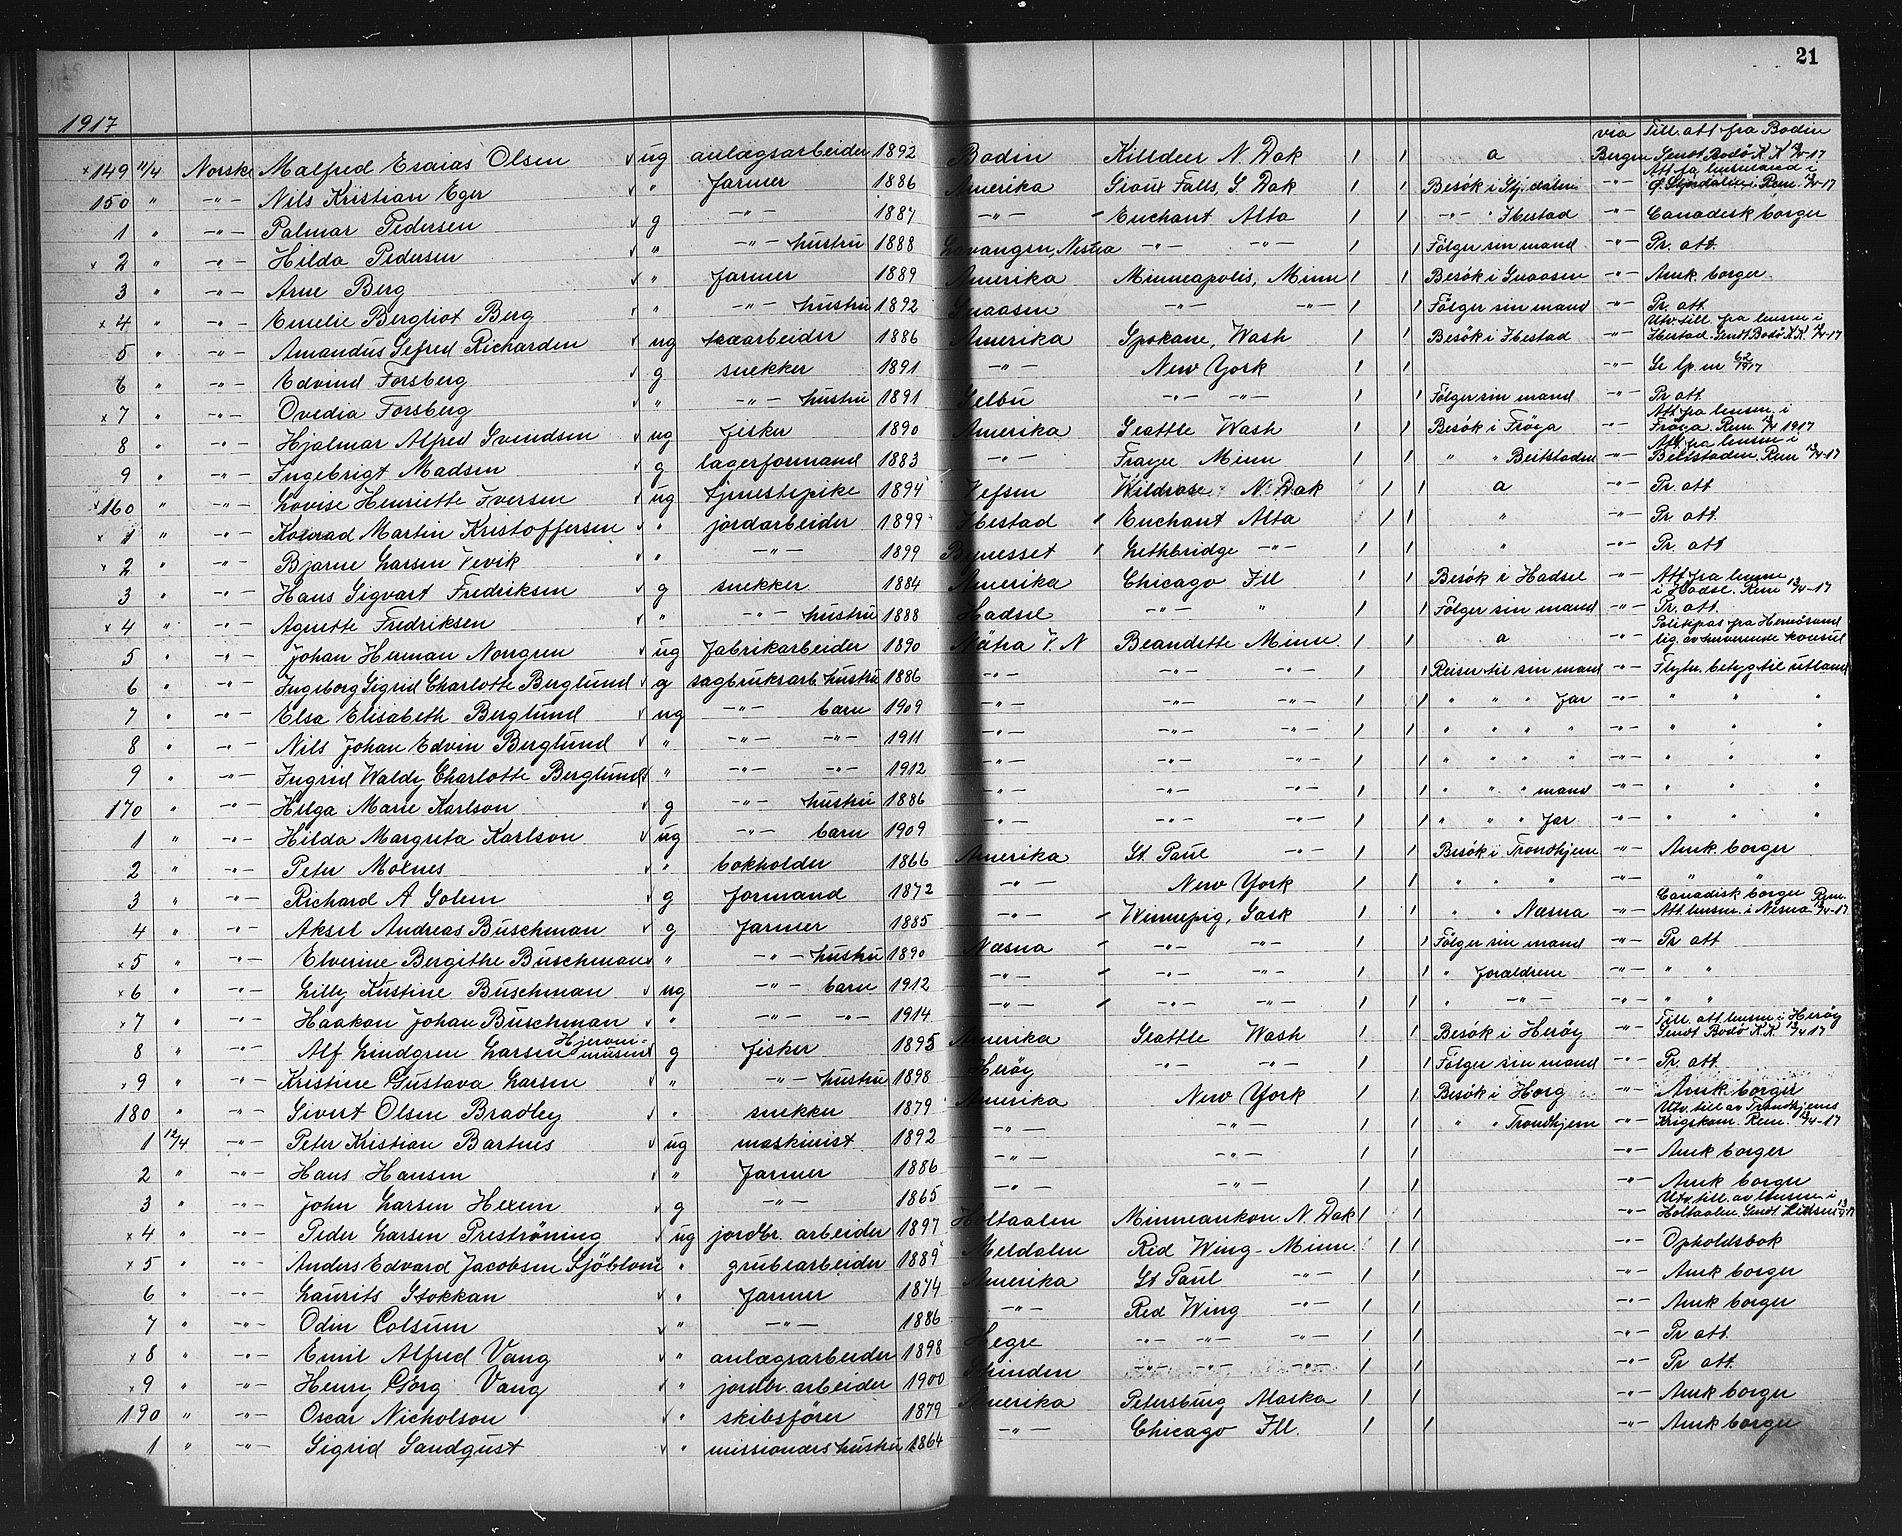 21
1917
via Till. att fra Bodin
×149 11/4 Norsk Malfred Esaias Olsen ug anlægsarbeider 1892 Bodin Killdeer N. Dak 1 1 a Bergen Sendt Bodö K.K. 12/4-17
150 " -"- Nils Kristian Eger " farmer 1886 Amerika Sioux Falls, S. Dak 1 1 Besök i Stjördalen -"- Att fra lensmand i Ö. Stjördalen. Rem. 12/4-17
1 " -"- Palmar Pedersen g -"- 1887 -"- Enchant Alta 1 1 -"- " Ibestad -"- Canadisk borger
×2 " -"- Hilda Pedersen " -"- hustru 1888 Lavangen, Nestra -"- -"- 1 1 Følger sin mand -"- Pr. att.
3 " -"- Arne Berg " farmer 1889 Amerika Minneapolis, Minn 1 1 Besök i Snaasen -"- Amk. borger
×4 " -"- Emelie Bergliot Berg " -"- hustru 1892 Snaasen -"- -"- 1 1 Følger sin mand -"- Pr. att.
5 " -"- Amandus Sefred Richardsen ug træarbeider 1886 Amerika Spokane, Wash 1 1 Besök i Ibestad -"- Utv. till. fra lensm i Ibestad. Sendt Bodö K.K. 12/4-17
6 " -"- Edvind Forsberg g snekker 1891 -"- New York 1 1 -"- Se lp. nr 62/1917
×7 " -"- Ovedia Forsberg " -"- hustru 1891 Selbu -"- -"- 1 1 Følger sin mand -"- Pr. att.
8 " -"- Hjalmar Alfred Svendsen ug fisker 1890 Amerika Seattle Wash 1 1 Besök i Fröya -"- Att fra lensm. i Fröya. Rem. 12/4 1917
9 " -"- Ingebrigt Madsen g lagerformand 1883 -"- Frazee Minn 1 1 " " Beitstaden -"- Att. fra lensm i Beitstaden. Rem 12/4-17
×160 " -"- Lovise Henriette Iversen ug tjenestepike 1894 Vefsen Wildrose N. Dak 1 1 a -"- Pr. att
×1 " -"- Konrad Martin Kristoffersen " jordarbeider 1899 Ibestad Enchant Alta 1 1 " -"- Pr. att.
×2 " -"- Bjarne Larsen Vevik " -"- 1899 Brunesset Lethbridge -"- 1 1 " -"- Pr. att
3 " -"- Hans Sigvart Fredriksen g snekker 1884 Amerika Chicago Ill 1 1 Besök i Hadsel -"- Att fra lensm i Hadsel. Rem 12/4-17
×4 " -"- Agnette Fredriksen " -"- hustru 1888 Hadsel -"- " 1 1 Følger sin mand -"- Pr. att.
5 " -"- Johan Herman Norrgren ug fabrikarbeider 1890 Nätra V. N Beaudette Minn. 1 1 a -"- Politipas fra Hernösand
6 " -"- Ingeborg Sigrid Charlotte Berglund g sagbruksarb. hustru 1886 -"- -"- -"- 1 1 Reiser til sin mand -"- Flytn. betyg til utland
7 " -"- Elsa Elisabeth Berglund ug -"- barn 1909 -"- -"- -"- 1 1 " " " far -"- " " "
8 " -"- Nils Johan Edvin Berglund " -"- -"- 1911 -"- -"- -"- 1 1 " " " " -"- " " "
9 " -"- Ingrid Waldy Charlotte Berglund " -"- -"- 1912 -"- -"- -"- 1 1 " " " " -"- " " "
170 " -"- Helga Marie Karlson g -"- hustru 1886 -"- -"- -"- 1 1 " " " mand -"- " " "
1 " -"- Hilda Margreta Karlson ug -"- barn 1909 -"- -"- -"- 1 1 " " " far -"- " " "
2 " -"- Peter Molnes " bokholder 1866 Amerika St. Paul -"- 1 1 Besök i Trondhjem -"- Amk. borger
3 " -"- Richard A Solem g formand 1872 -"- New York 1 1 " " " -"- " "
4 " -"- Aksel Andreas Buschman g farmer 1885 -"- Winnepig, Sask 1 1 " " Næsna -"- Canadisk borger Rem. Att. lensm. i Nesna 12/4-17
×5 " -"- Elverine Bergithe Buschman " -"- hustru 1890 Næsna -"- -"- 1 1 Følger sin mand -"- Pr att
×6 " -"- Lilly Kristine Buschman ug -"- barn 1912 -"- -"- -"- 1 1 " forældrene -"- " "
×7 " -"- Haakon Johan Buschman " -"- -"- 1914 -"- -"- -"- 1 1 " -"- -"- " "
8 " -"- Alf Lindgren Larsen Hjeronimusen g fisker 1895 Amerika Seattle Wash 1 1 Besök i Heröy -"- Till. att lensm i Heröy Sendt Bodö K.K. 12/4 17
×9 " -"- Kristine Gustava Larsen " -"- hustru 1898 Heröy -"- -"- 1 1 Følger sin mand -"- Pr. att.
180 " -"- Sivert Olsen Bradley " snekker 1879 Amerika New York 1 1 Besök i Horg -"- Amk borger
1 12/4 -"- Peter Kristian Bartnes ug maskinist 1892 -"- -"- 1 1 " " Trondhjem -"- Utv. till av Trondhjems Krigskom. Rem. 12/4-17
2 " -"- Hans Hansen " farmer 1886 -"- -"- 1 1 -"- Amk borger
3 " -"- John Larsen Hexem g -"- 1865 -"- -"- 1 1 -"- Amk borger
×4 " -"- Peder Larsen Preströning ug jordbr. arbeider 1897 Holtaalen Minneaukon. N. Dak 1 1 -"- Utv. till. av lensm i Holtaalen. Sendt
×5 " -"- Anders Edvard Jacobsen Sjöblom " grubearbeider 1889 Meldalen Red Wing - Minn. 1 1 -"- Opholdsbok
6 " -"- Laurits Stokkan " farmer 1874 Amerika St Paul -"- 1 1 -"- Amk borger
7 " -"- Odin Colsum " -"- 1886 -"- Red Wing -"- 1 1 -"- Amk borger
×8 " -"- Emil Alfred Vang " anlægsarbeider 1898 Hegre -"- -"- -"- 1 1 -"- Pr. att.
×9 " -"- Henry Georg Vang " jordbr. arbeider 1900 -"- -"- -"- 1 1 -"- Pr att.
190 " -"- Oscar Nicholson " skibsfører 1879 Amerika Petersburg Alaska 1 1 -"- Amk borger
1 " -"- Sigrid Sandqust " missionærs hustru 1864 -"- Chicago Ill. 1 1 -"- Amk borger